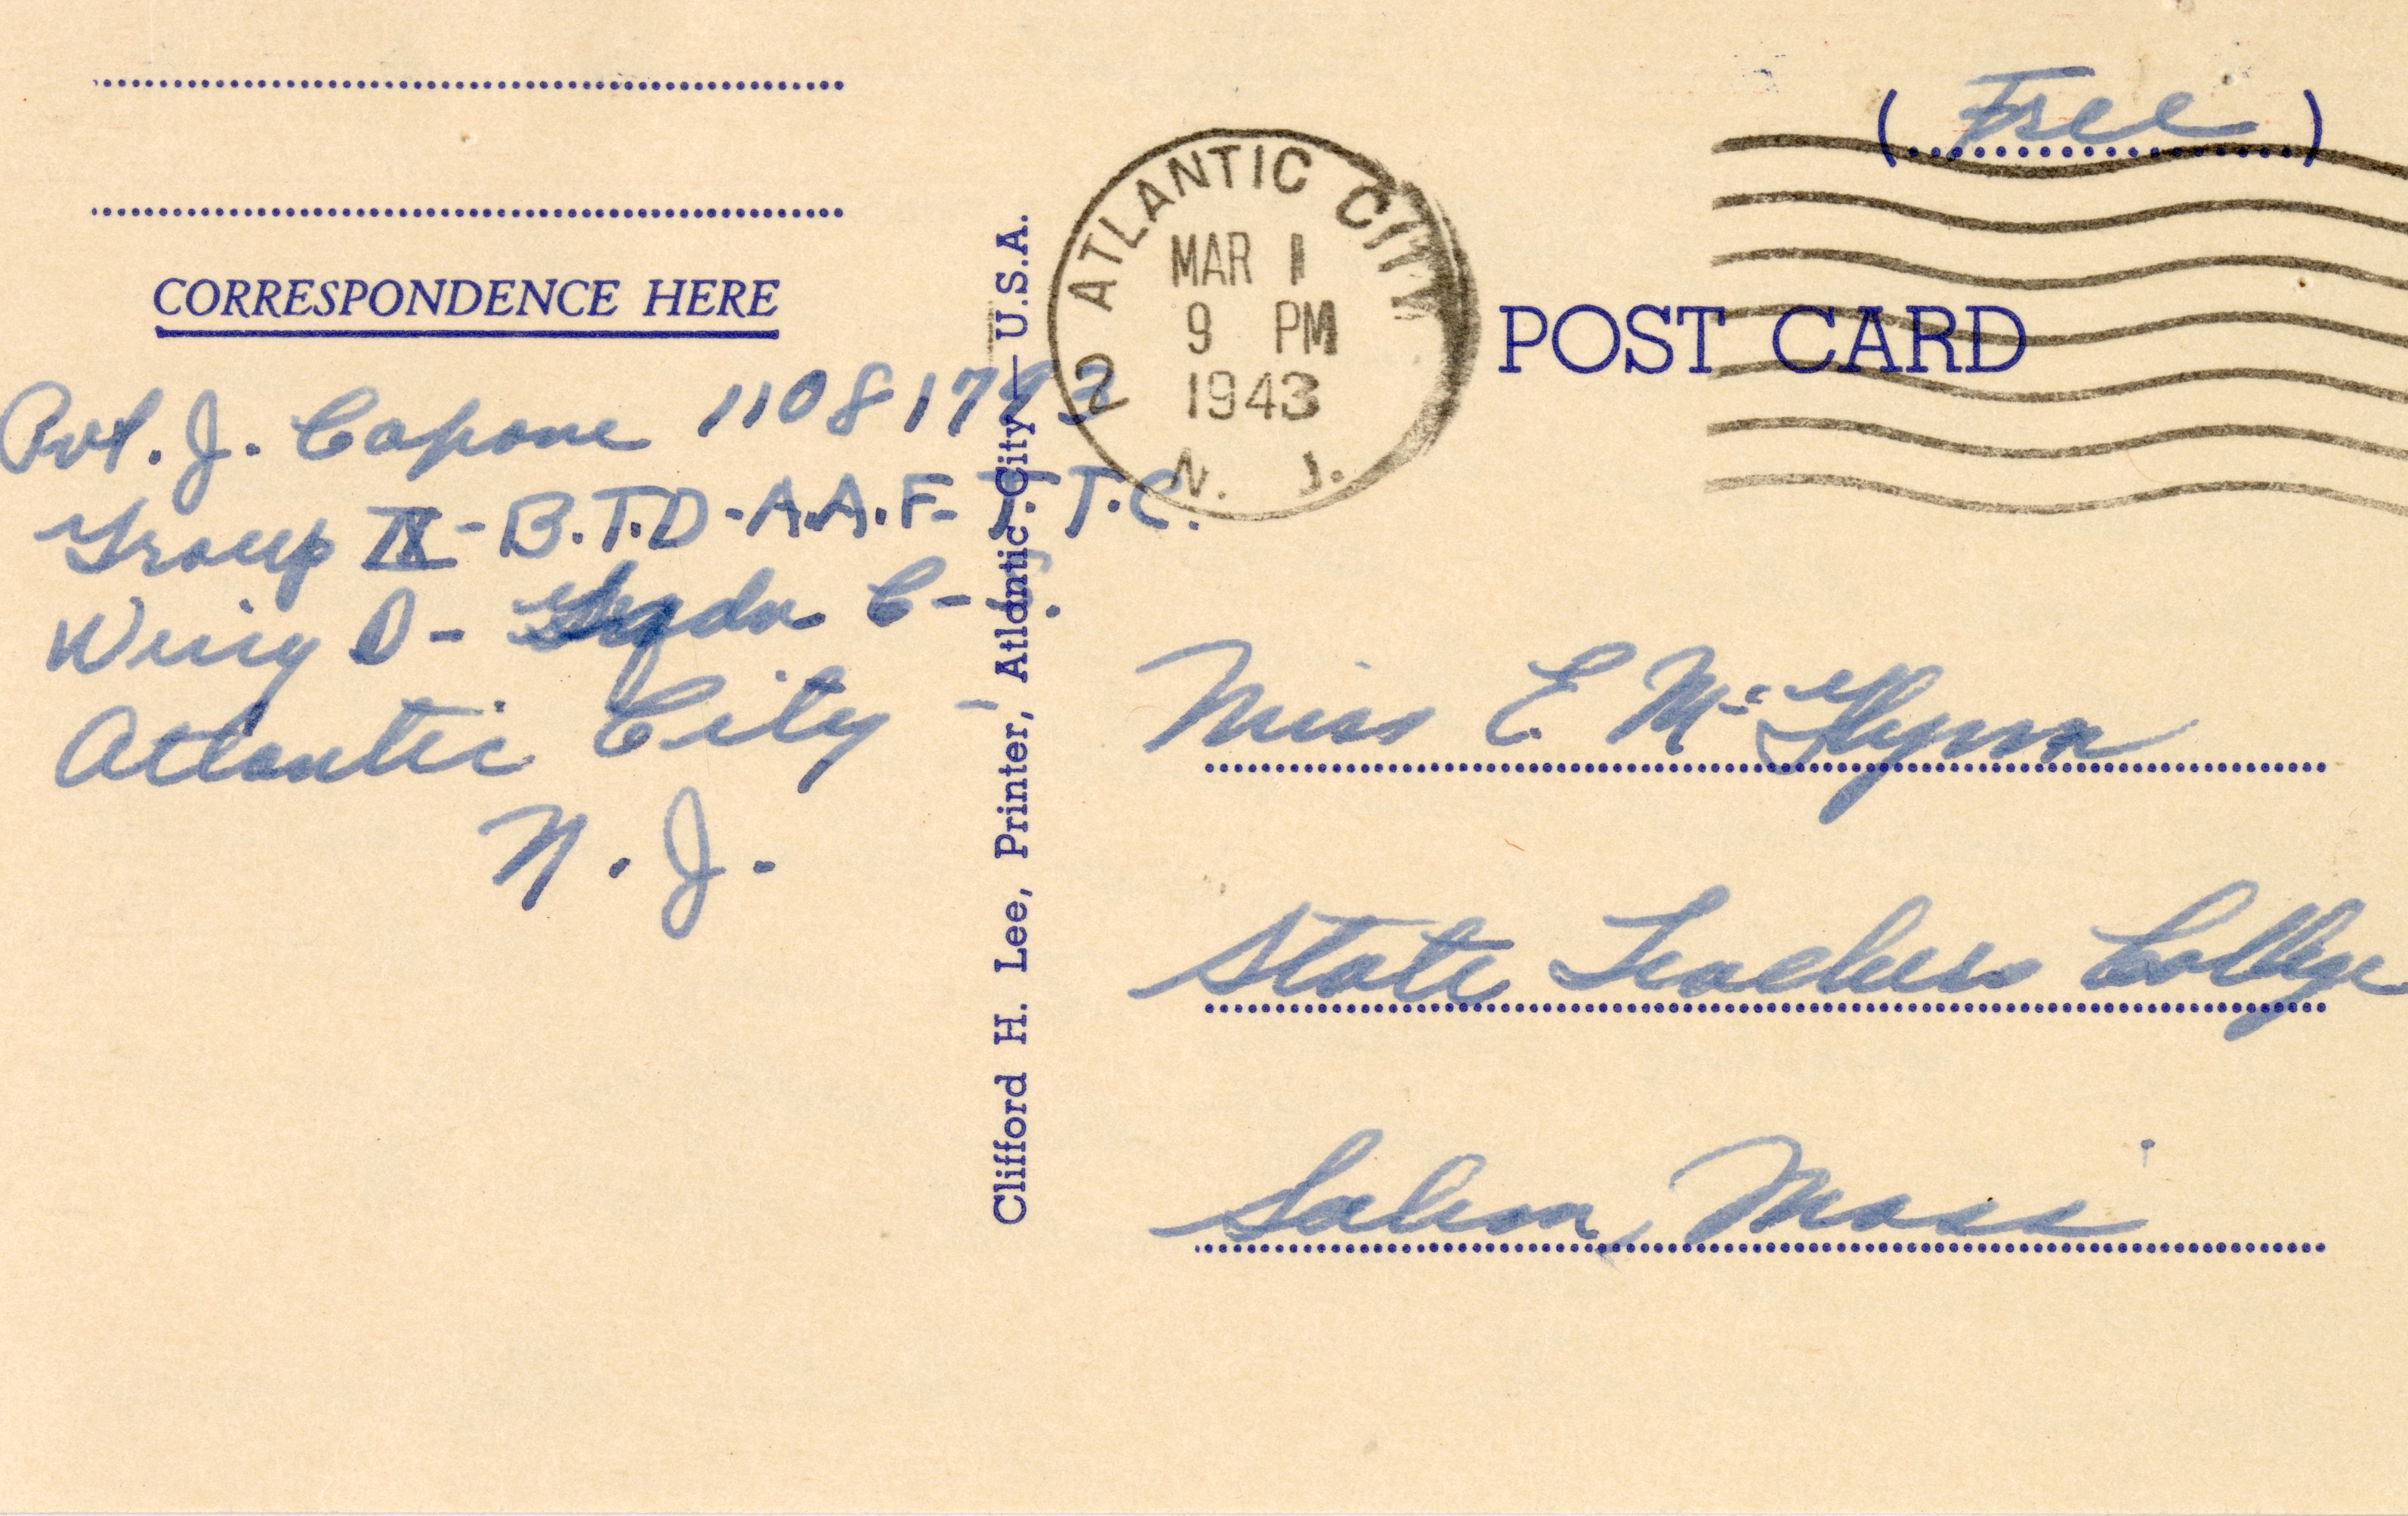 CORRESPONDENCE HERE
Pvt. J. Capone 11081793
Group IX - B.T.D - A.A.F. T.T.C.
Wing D - Sqdn C -
Atlantic City -
N. J.
Clifford H. Lee, Printer, Atlantic City — U.S.A.
2 ATLANTIC CITY
MAR 1
9 PM
1943
N. J.
(Free)
POST CARD
Miss E. Mc Glynn
State Teachers College
Salem, Mass